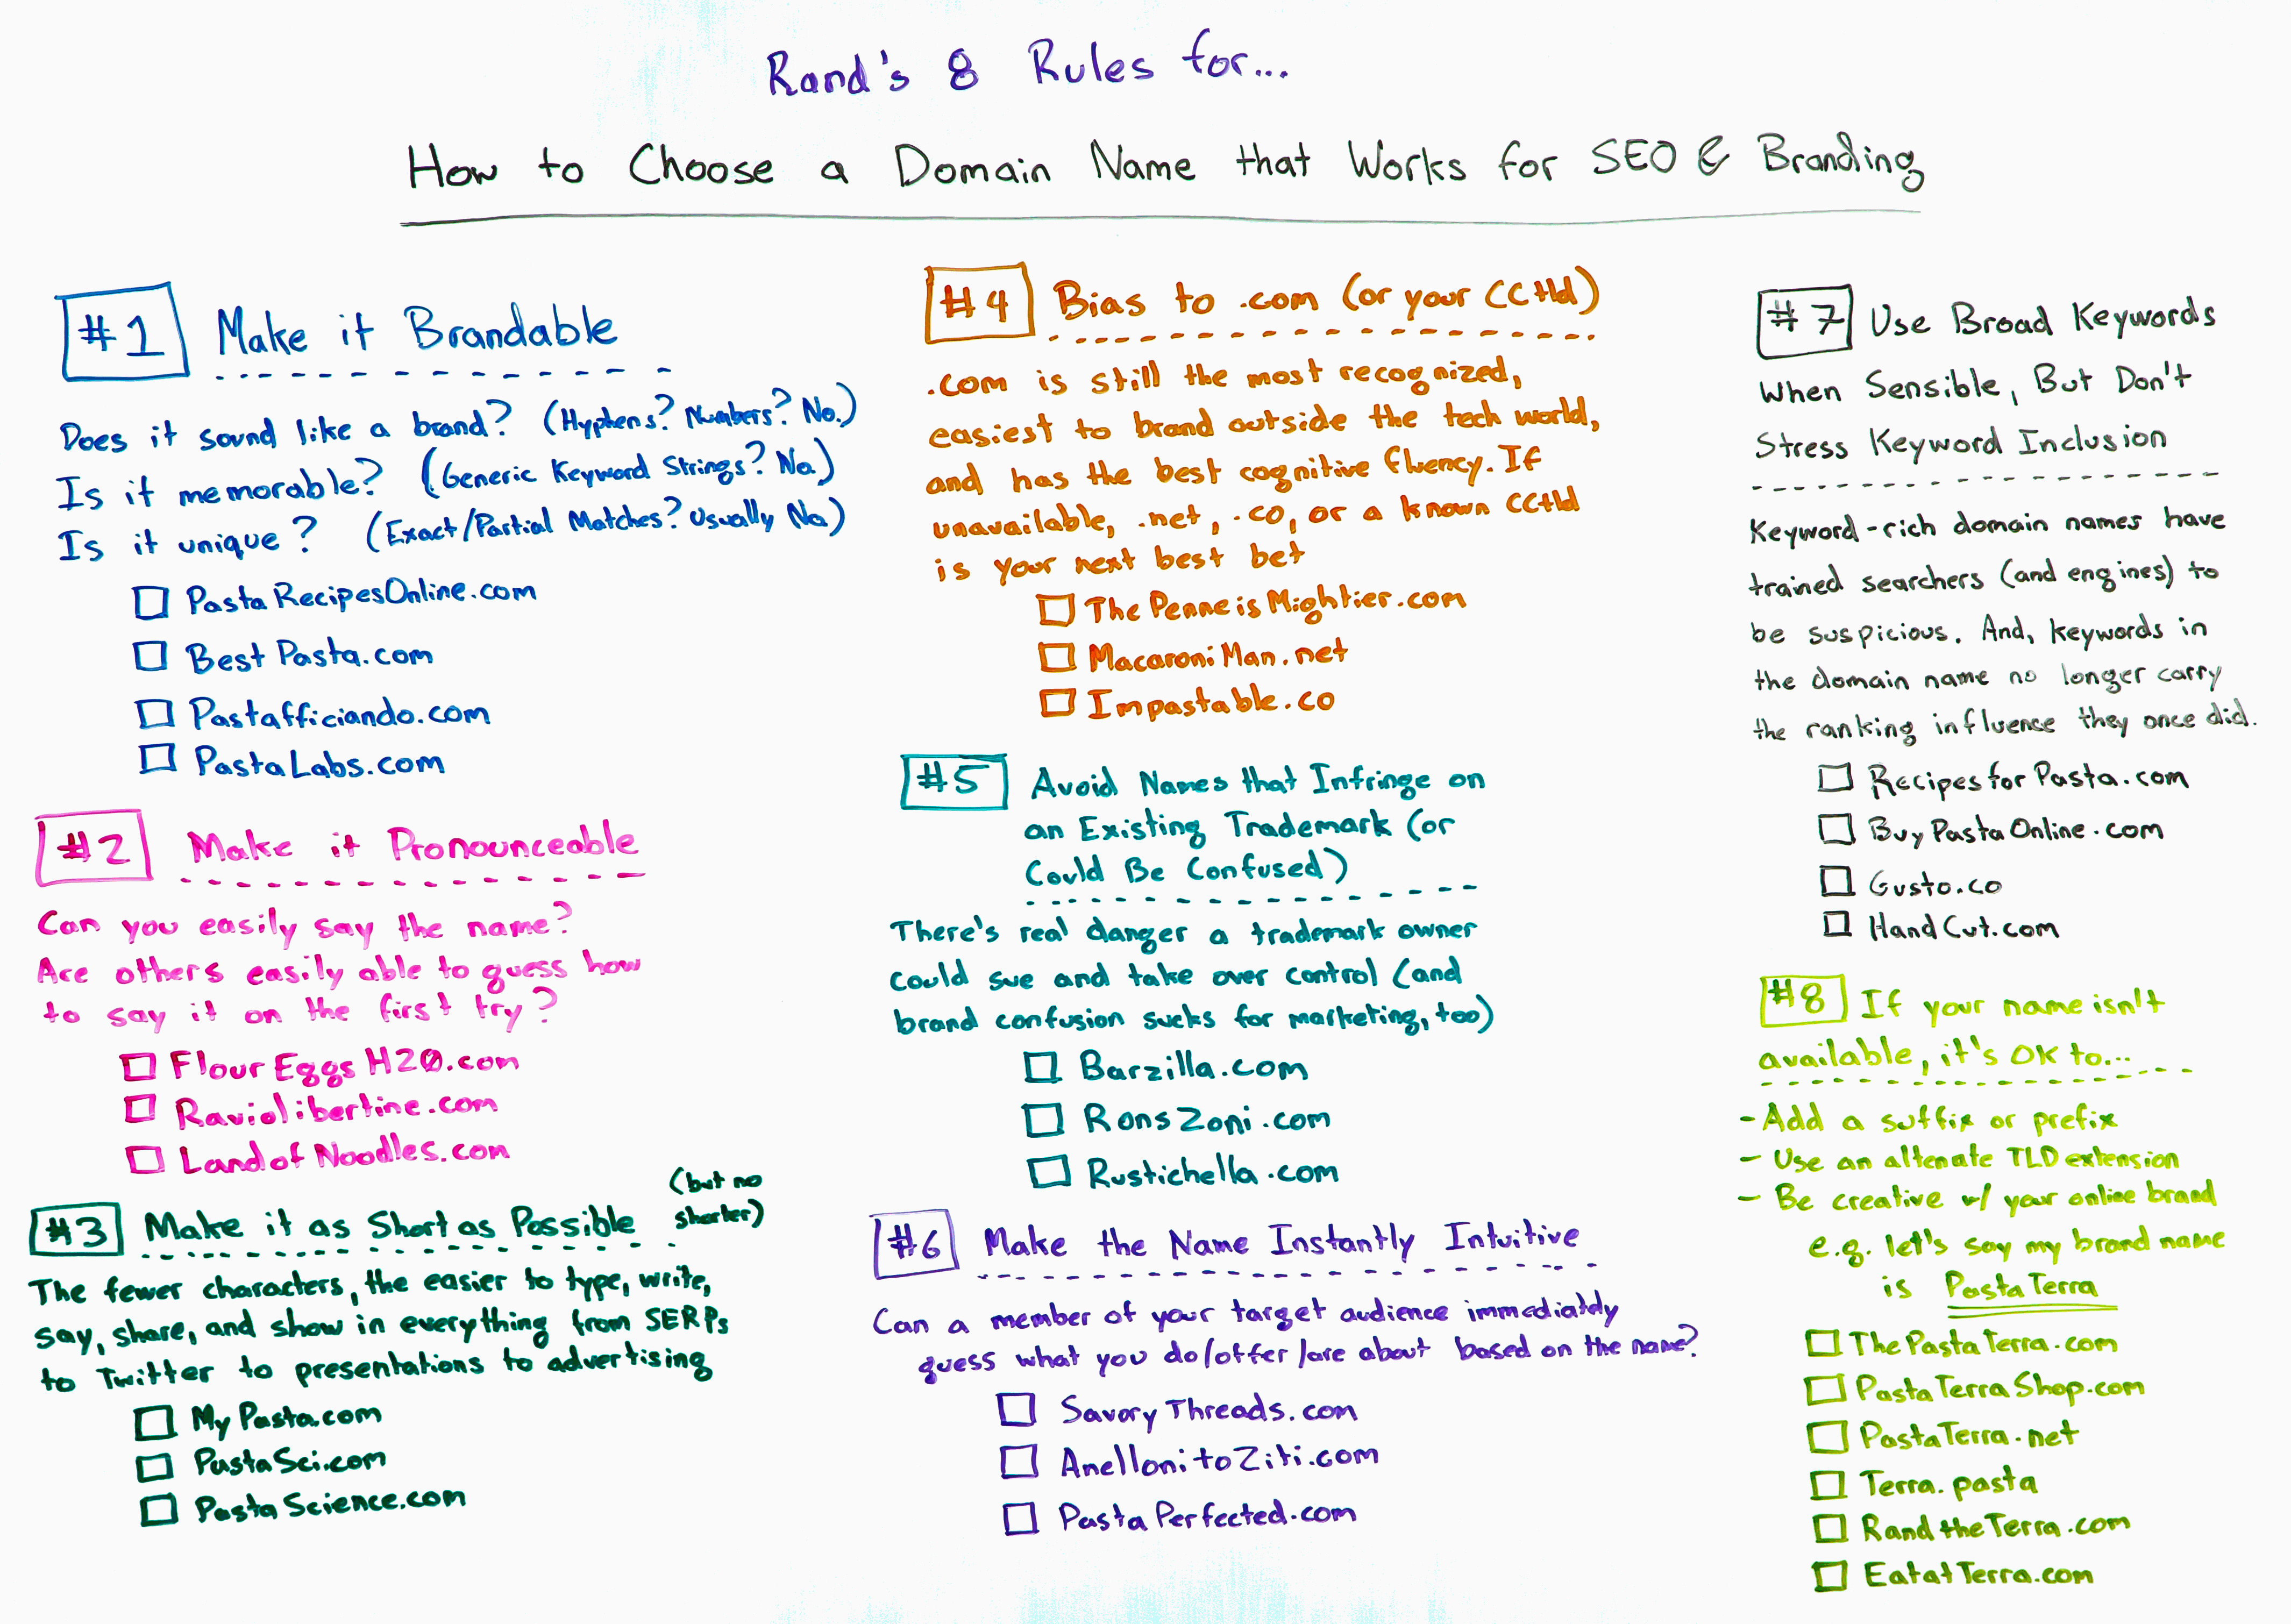 Rand's 8 Rules for...
How to Choose a Domain Name that Works for SEO & Branding
#1 Make it Brandable
Does it sound like a brand? (Hyphens? Numbers? No.)
Is it memorable? (Generic Keyword Strings? No.)
Is it unique? (Exact/Partial Matches? Usually No.)
PastaRecipesOnline.com
BestPasta.com
Pastafficiando.com
PastaLabs.com
#2 Make it Pronounceable
Can you easily say the name?
Are others easily able to guess how
to say it on the first try?
FlourEggsH20.com
Raviolibertine.com
LandofNoodles.com
#3 Make it as Short as Possible (but no
shorter)
The fewer characters, the easier to type, write,
say, share, and show in everything from SERPs
to Twitter to presentations to advertising
MyPasta.com
PastaSci.com
PastaScience.com
#4 Bias to .com (or your CCtld)
.com is still the most recognized,
easiest to brand outside the tech world,
and has the best cognitive fluency. If
unavailable, .net, .co, or a known CCtld
is your next best bet
ThePenneisMightier.com
MacaroniMan.net
Impastable.co
#5 Avoid Names that Infringe on
an Existing Trademark (or
Could Be Confused)
There's real danger a trademark owner
could sue and take over control (and
brand confusion sucks for marketing, too)
Barzilla.com
RonsZoni.com
Rustichella.com
#6 Make the Name Instantly Intuitive
Can a member of your target audience immediatly
guess what you do/offer/are about based on the name?
SavoryThreads.com
AnellonitoZiti.com
PastaPerfected.com
#7 Use Broad Keywords
When Sensible, But Don't
Stress Keyword Inclusion
Keyword-rich domain names have
trained searchers (and engines) to
be suspicious. And, keywords in
the domain name no longer carry
the ranking influence they once did.
RecipesforPasta.com
BuyPastaOnline.com
Gusto.co
HandCut.com
#8 If your name isn't
available, it's OK to...
- Add a suffix or prefix
- Use an altenate TLD extension
- Be creative w/ your online brand
e.g. let's say my brand name
is PastaTerra
ThePastaTerra.com
PastaTerraShop.com
PastaTerra.net
Terra.pasta
RandtheTerra.com
EatatTerra.com